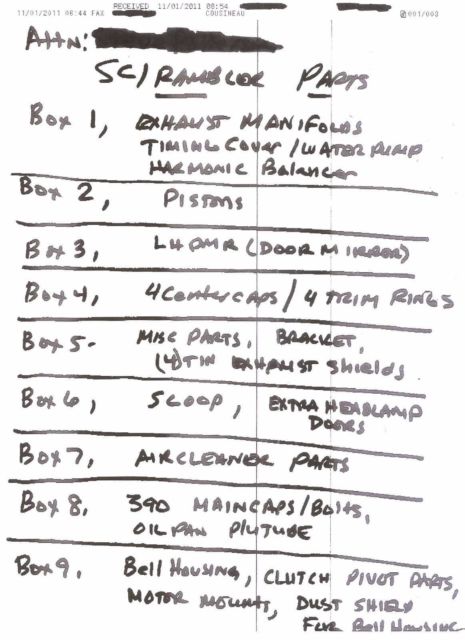 11/01/2011 08:44 FAX RECEIVED 11/01/2011 08:54 COUSINEAU 001/003
ATTN:
SC/RAMBLER PARTS
Box 1, EXHAUST MANIFOLDS
TIMING COVER / WATER PUMP
HARMONIC Balancer
Box 2, PISTONS
Box 3, LH DMR (DOOR MIRROR)
Box 4, 4 Center CAPS / 4 TRIM RINGS
Box 5- MISC PARTS, BRACKET,
(4) TIN EXHAUST Shields
Box 6, SCOOP, EXTRA HEADLAMP
DOORS
Box 7, AIRCLEANER PARTS
Box 8, 390 MAINCAPS/Bolts,
OIL PAN P/U TUBE
Box 9, Bell Housing, CLUTCH PIVOT PARTS,
MOTOR MOUNT, DUST SHIELD
FOR Bell Housing